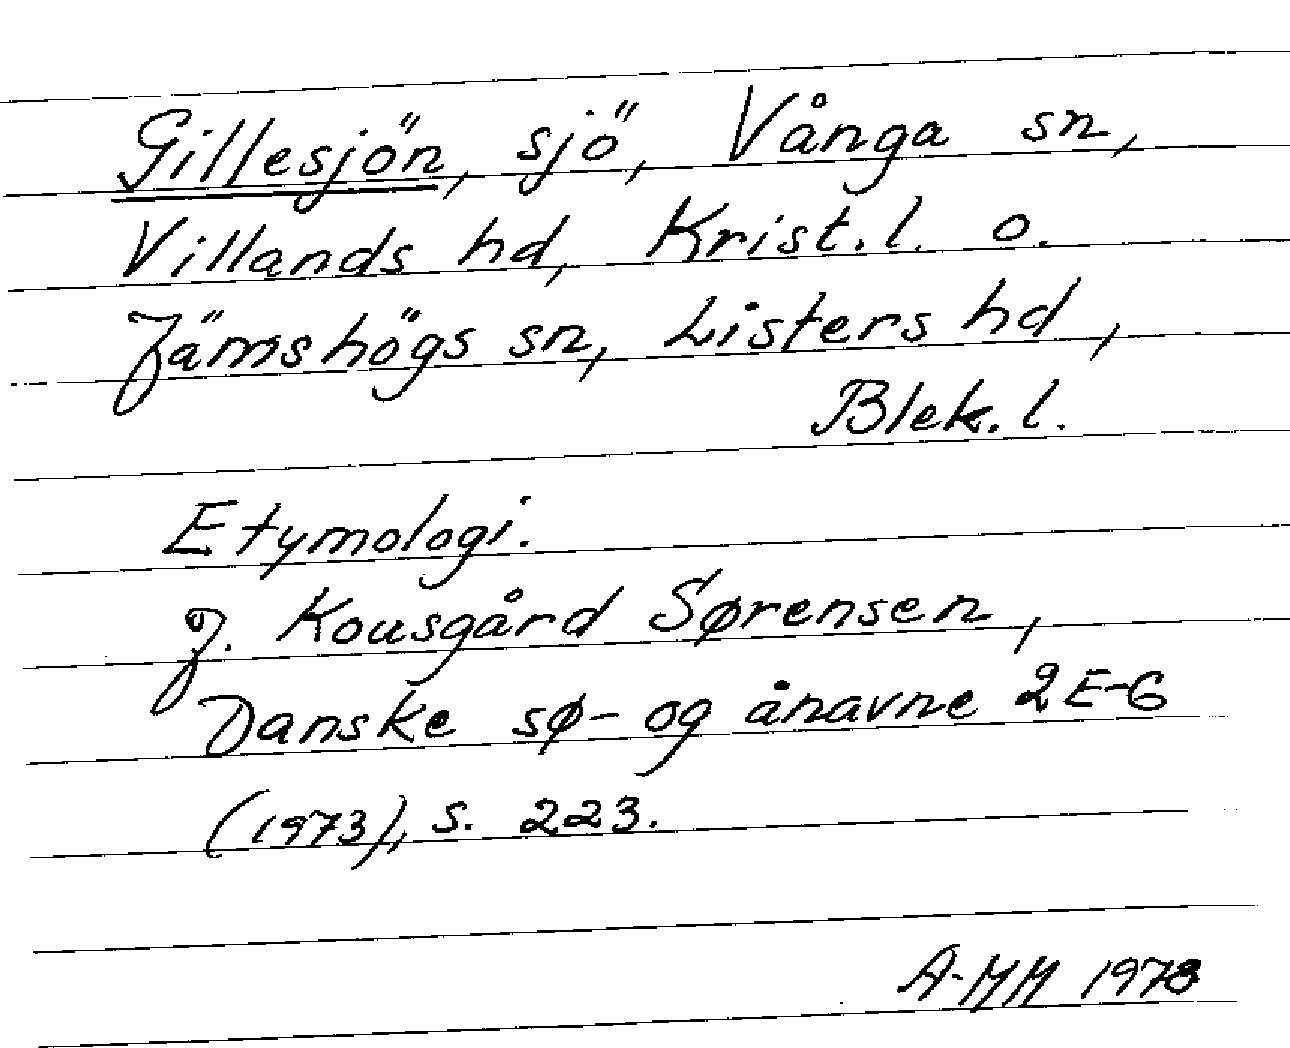 Gillesjön, sjö, Vånga sn,
Villands hd, Krist.l. o.
Jämshögs sn, Listers hd,
Blek.l.
Etymologi.
J. Kousgård Sørensen,
Danske sø- og ånavne 2 E-G
(1973), s. 223.
A-MM 1978